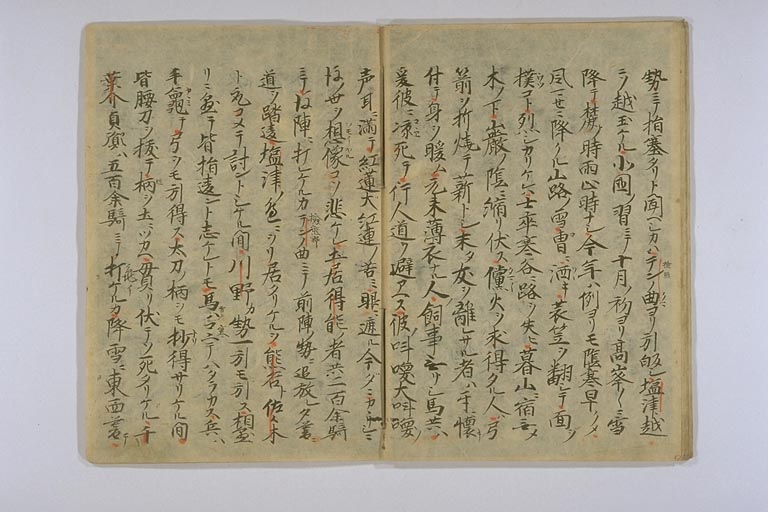 勢ニテ指塞タリト聞ヘシカハチノ曲ヨリ引帰塩津越
ニソ越玉ケル小國ノ習ニテ十月ノ初ヨリ高峯々ニ雪
降テ麓ノ時雨止時ナシ今年ハ例ヨリモ陰寒早シテ
風ニ降クル山路ノ雪曹ニ洒キ蓑笠ヲ翻シテ面ヲ
撲コト烈シカリケレハ士卒寒谷ニ路ヲ失ヒ暮山ニ宿
木ノ下巌ノ陰ニ縮リ伏ス儻火ヲ求得タル人ハ弓
箭ヲ折焼テ薪トシ未タ友ヲ離サル者ハ手懐
付テ身ヲ暖ム元来薄衣ナル人飼事ナシ馬共
爰彼ニ凍死テ行人道ヲ避アエス彼叫喚大叫喚ノ
声耳ニ満テ紅蓮大紅蓮ノ苦ニ眼ニ遮ル今タニカヽリ
後ノ世ヲ想像コソ悲ケレ土居得能ノ者共二百余騎
ニテ後陣ニ打ケルカチノ曲ニテ前陣ノ勢ニ追放レ
道ヲ踏違塩津ノ色ニヲリ居タリケルヲ熊谷ト佐々木
ト取コメテ討ントシケル間川野カ勢一引モ引ス相
リニ色テ皆指違ント志ケレトモ馬ニテハタラカス兵ハ
手龜テ弓ヲモ引得ス太刀ノ柄ヲモ拶得サリケル間
皆腰刀ヲ抜テ柄ヲ土ニツカヘ貫リ伏テソ死タリケル千
葉介貞胤ハ五百余騎ニテ打ケルカ降雪ニ東西